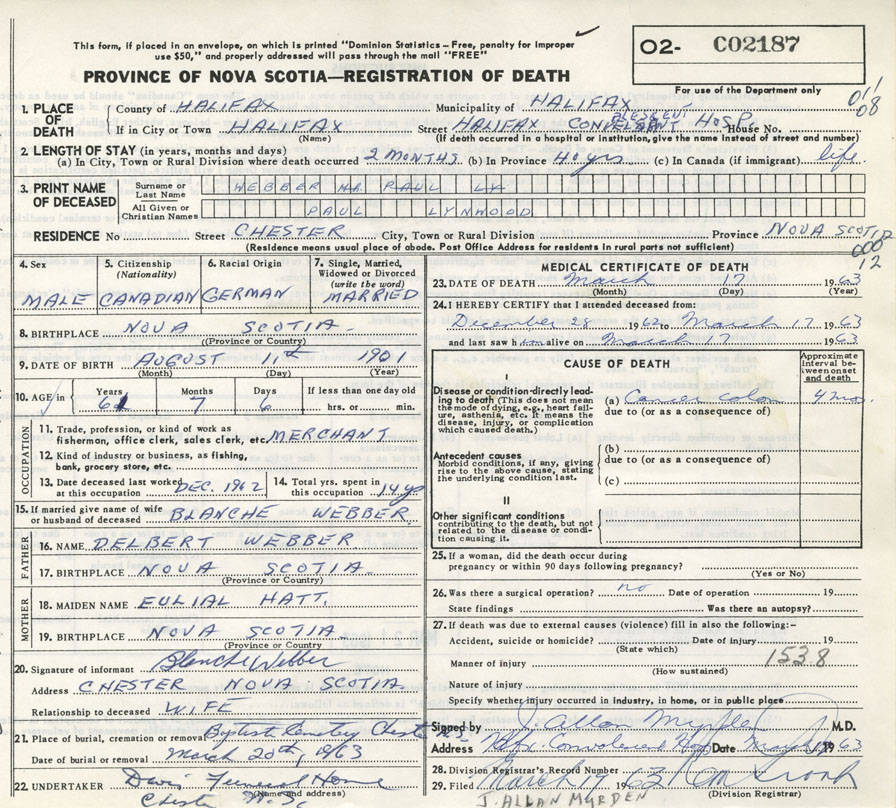 This form, if placed in an envelope, on which is printed "Dominion Statistics – Free, penalty for improper
use $50," and properly addressed will pass through the mail "FREE"
O2- C02187
PROVINCE OF NOVA SCOTIA—REGISTRATION OF DEATH
For use of the Department only
1. PLACE OF DEATH
County of HALIFAX Municipality of HALIFAX
011
08
If in City or Town HALIFAX Street HALIFAX HOSP. House No.
(Name) (If death occurred in a hospital or institution, give the name instead of street and number)
2. LENGTH OF STAY (in years, months and days)
(a) In City, Town or Rural Division where death occurred 2 MONTHS (b) In Province 40 yrs (c) In Canada (if immigrant) life.
3. PRINT NAME OF DECEASED
Surname or Last Name WEBBER PAUL
All Given or Christian Names PAUL LYNWOOD
RESIDENCE No Street CHESTER City, Town or Rural Division Province NOVA SCOTIA
(Residence means usual place of abode. Post Office Address for residents in rural parts not sufficient)
000
12
4. Sex 5. Citizenship (Nationality) 6. Racial Origin 7. Single, Married, Widowed or Divorced (write the word)
MALE CANADIAN GERMAN MARRIED
8. BIRTHPLACE NOVA SCOTIA.
(Province or Country)
9. DATE OF BIRTH AUGUST 11th 1901
(Month) (Day) (Year)
10. AGE in Years Months Days If less than one day old
61 7 6 hrs. or min.
OCCUPATION
11. Trade, profession, or kind of work as
fisherman, office clerk, sales clerk, etc. MERCHANT
12. Kind of industry or business, as fishing,
bank, grocery store, etc.
13. Date deceased last worked at this occupation DEC. 1962 14. Total yrs. spent in this occupation 14 yr
15. If married give name of wife or husband of deceased BLANCHE WEBBER
FATHER
16. NAME DELBERT WEBBER.
17. BIRTHPLACE NOVA SCOTIA.
(Province or Country)
MOTHER
18. MAIDEN NAME EULIAL HATT.
19. BIRTHPLACE NOVA SCOTIA.
(Province or Country)
20. Signature of informant Blanche Webber
Address CHESTER NOVA SCOTIA.
Relationship to deceased WIFE
21. Place of burial, cremation or removal Baptist Cemetery Chester N.S.
Date of burial or removal March 20th, 1963
22. UNDERTAKER Funeral Home
(Name and address)
Chester N.S.
MEDICAL CERTIFICATE OF DEATH
23. DATE OF DEATH March 17 1963
(Month) (Day) (Year)
24. I HEREBY CERTIFY that I attended deceased from:
December 28 1962 to March 17 1963
and last saw him alive on March 17 1963
CAUSE OF DEATH
Approximate interval between onset and death
I
Disease or condition directly leading to death (This does not mean the mode of dying, e.g., heart failure, asthenia, etc. It means the disease, injury, or complication which caused death.)
(a) Cancer colon 4 mo.
due to (or as a consequence of)
Antecedent causes
Morbid conditions, if any, giving rise to the above cause, stating the underlying condition last.
(b)
due to (or as a consequence of)
(c)
II
Other significant conditions
contributing to the death, but not related to the disease or condition causing it.
25. If a woman, did the death occur during
pregnancy or within 90 days following pregnancy?
(Yes or No)
26. Was there a surgical operation? no Date of operation 19
State findings Was there an autopsy?
27. If death was due to external causes (violence) fill in also the following:-
Accident, suicide or homicide? Date of injury 19
(State which)
Manner of injury 153.8
(How sustained)
Nature of injury
Specify whether injury occurred in industry, in home, or in public place
Signed by J. Allan Myrden M.D.
Address Hfx. Convalescent Hosp Date March 1963
28. Division Registrar's Record Number
29. Filed March 1963
(Division Registrar)
J. ALLAN MYRDEN